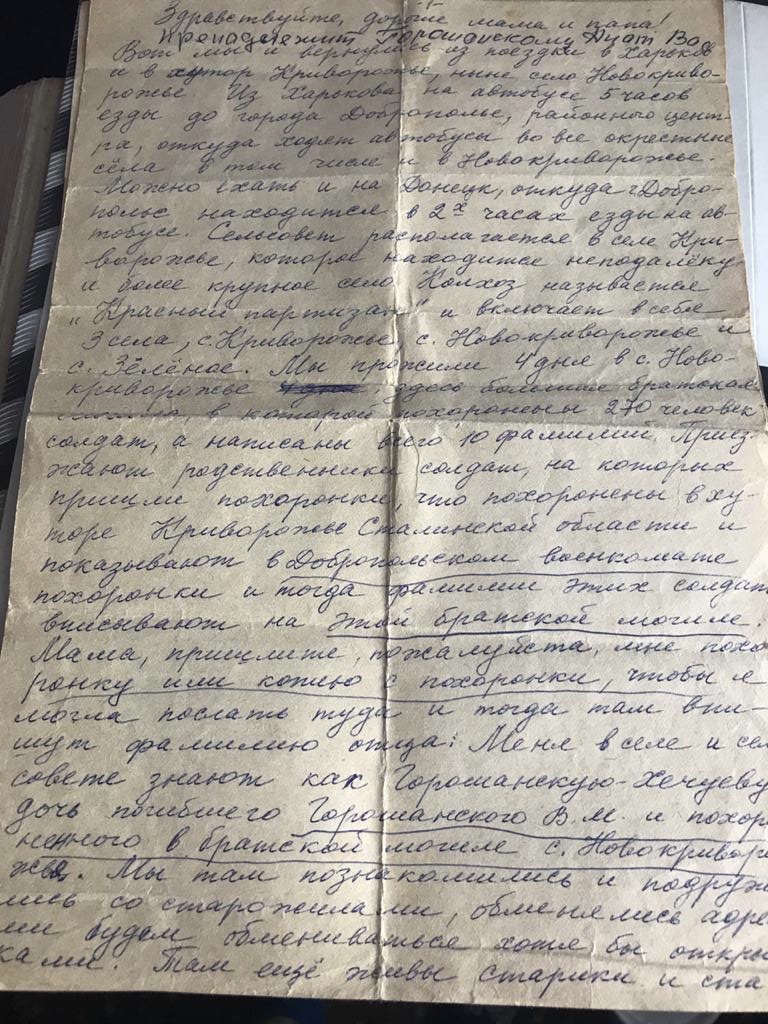 Здравствуйте, дорогие мама и папа!
Принадлежит Горошанскому
Вот мы и вернулись из поездки в Харьков
и в хутор Криворожье, ныне село Новокриво-
рожье. Из Харькова на автобусе 5 часов
езды до города Доброполье, районного цент-
ра, откуда ходят автобусы во все окрестные
сёла в том числе и в Новокриворожье.
Можно ехать и на Донецк, откуда г. Добро-
полье находится в 2х часах езды на ав-
тобусе. Сельсовет располагается в селе Кри-
ворожье, которое находится неподалёку
и более крупное село. Колхоз называется
„Красный партизан" и включает в себя
3 села, с. Криворожье, с. Новокриворожье и
с. Зелёное. Мы прожили 4 дня в с. Ново-
криворожье, здесь большая братская
могила, в которой похоронены 270 человек
солдат, а написаны всего 10 фамилий. Приез-
жают родственники солдат, на которых
пришли похоронки, что похоронены в ху-
торе Криворожье Сталинской области и
показывают в Добропольском военкомате
похоронки и тогда фамилии этих солдат
вписывают на этой братской могиле.
Мама, пришлите, пожалуйста, мне похо-
ронку или копию с похоронки, чтобы я
могла послать туда и тогда там впи-
шут фамилию отца. Меня в селе и сел
совете знают как Горошанскую-Хечуеву
дочь погибшего Горошанского В.М. и похоро
ненного в братской могиле с. Новокриворо
жье. Мы там познакомились и подруж
лись со старожилами, обменялись адре
ми будем обмениваться хотя бы откры
ками. Там ещё живы старики и ста